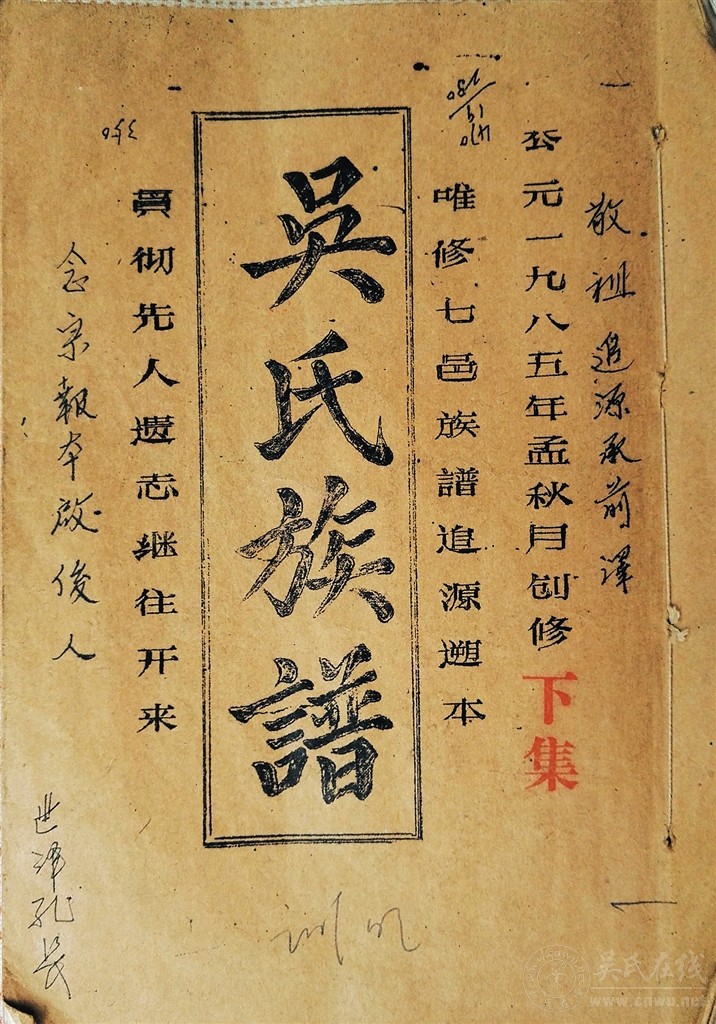 敬祖追源承前澤
公元一九八五年孟秋月创修 下集
唯修七邑族譜追源遡本
吳氏族譜
貫彻先人遗志继往开来
念宗報本啟後人
世澤孔長
吴氏在线
www.cnwu.net